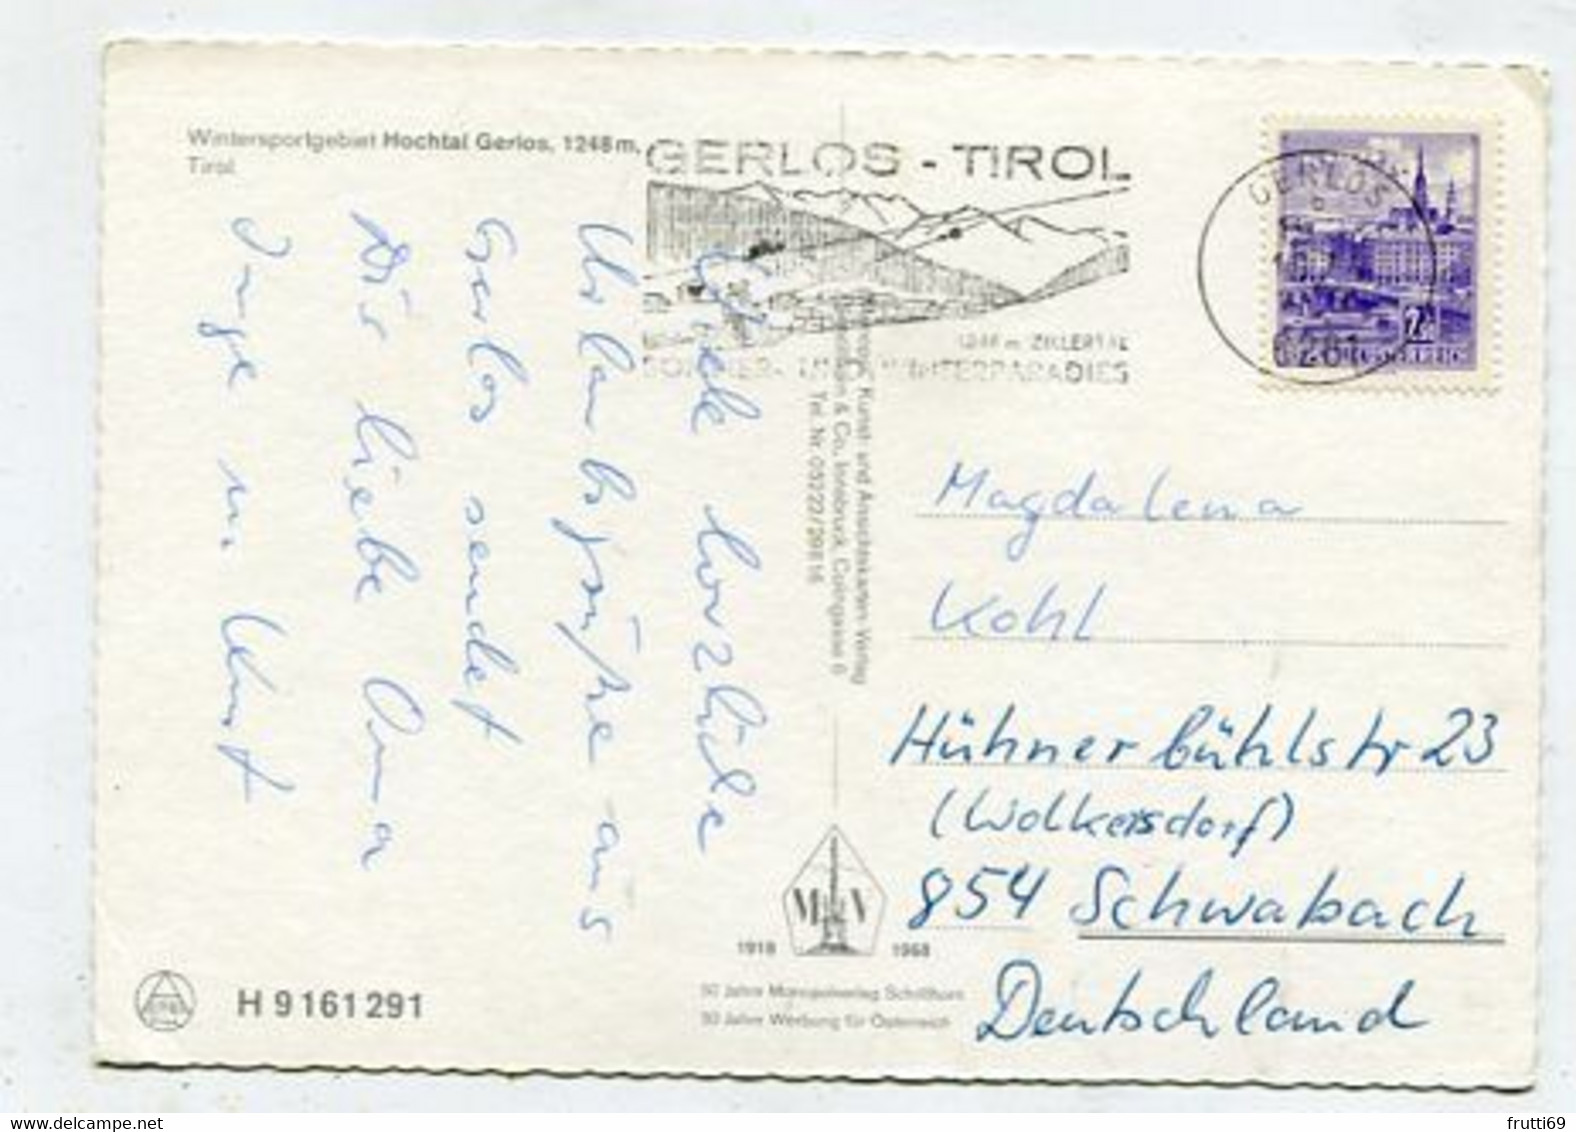 Wintersportgebiet Hochtal Gerlos, 1248 m,
Tirol
GERLOS - TIROL
1248 m ZILLERTAL
SOMMER- UND WINTERPARADIES
GERLOS
6281
herzliche
Urlaubsgrüße aus
Gerlos sendet
Dir liebe Oma
Inge u. Kurt
Kunst- und Ansichtskarten-Verlag
& Co., Innsbruck, Colingasse 6
Tel. Nr. 05222/20816
Magdalena
Kohl
Hühnerbühlstr 23
(Wolkersdorf)
854 Schwabach
Deutschland
1918 1968
50 Jahre Monopolverlag Schöllhorn
50 Jahre Werbung für Österreich
H 9 161 291
frutti69